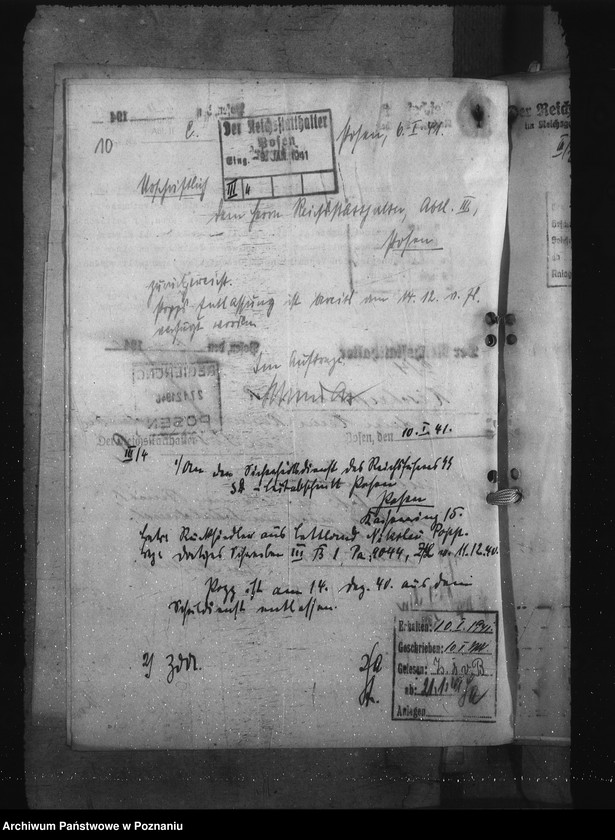 10
Der Reichsstatthalter
Posen
Eing. 1941
III 4
Posen, 6. I. 41.
Urschriftlich
dem Herrn Reichsstatthalter, Abtl. III,
Posen
zurückgereicht.
Popp's Entlassung ist bereits am 14. 12. v. Js.
verfügt worden.
Im Auftrage
Der Reichsstatthalter
Posen, den 10. I. 41.
III/4
1/ An den Sicherheitsdienst des Reichsführers SS
SD - Leitabschnitt Posen
Posen
Kaiserring 15.
Betr. Rücksiedler aus Lettland Nikolai Popp.
Bzg. Dortiges Schreiben III B 1, Pa. 9044, v. 11.12.40.
Popp ist am 14. Dez. 40. aus dem
Schuldienst entlassen.
2) ZdA.
Erhalten: 10. I. 1941
Geschrieben: 10. I.
Gelesen:
ab: 21.1.41
Anlagen
Archiwum Państwowe w Poznaniu